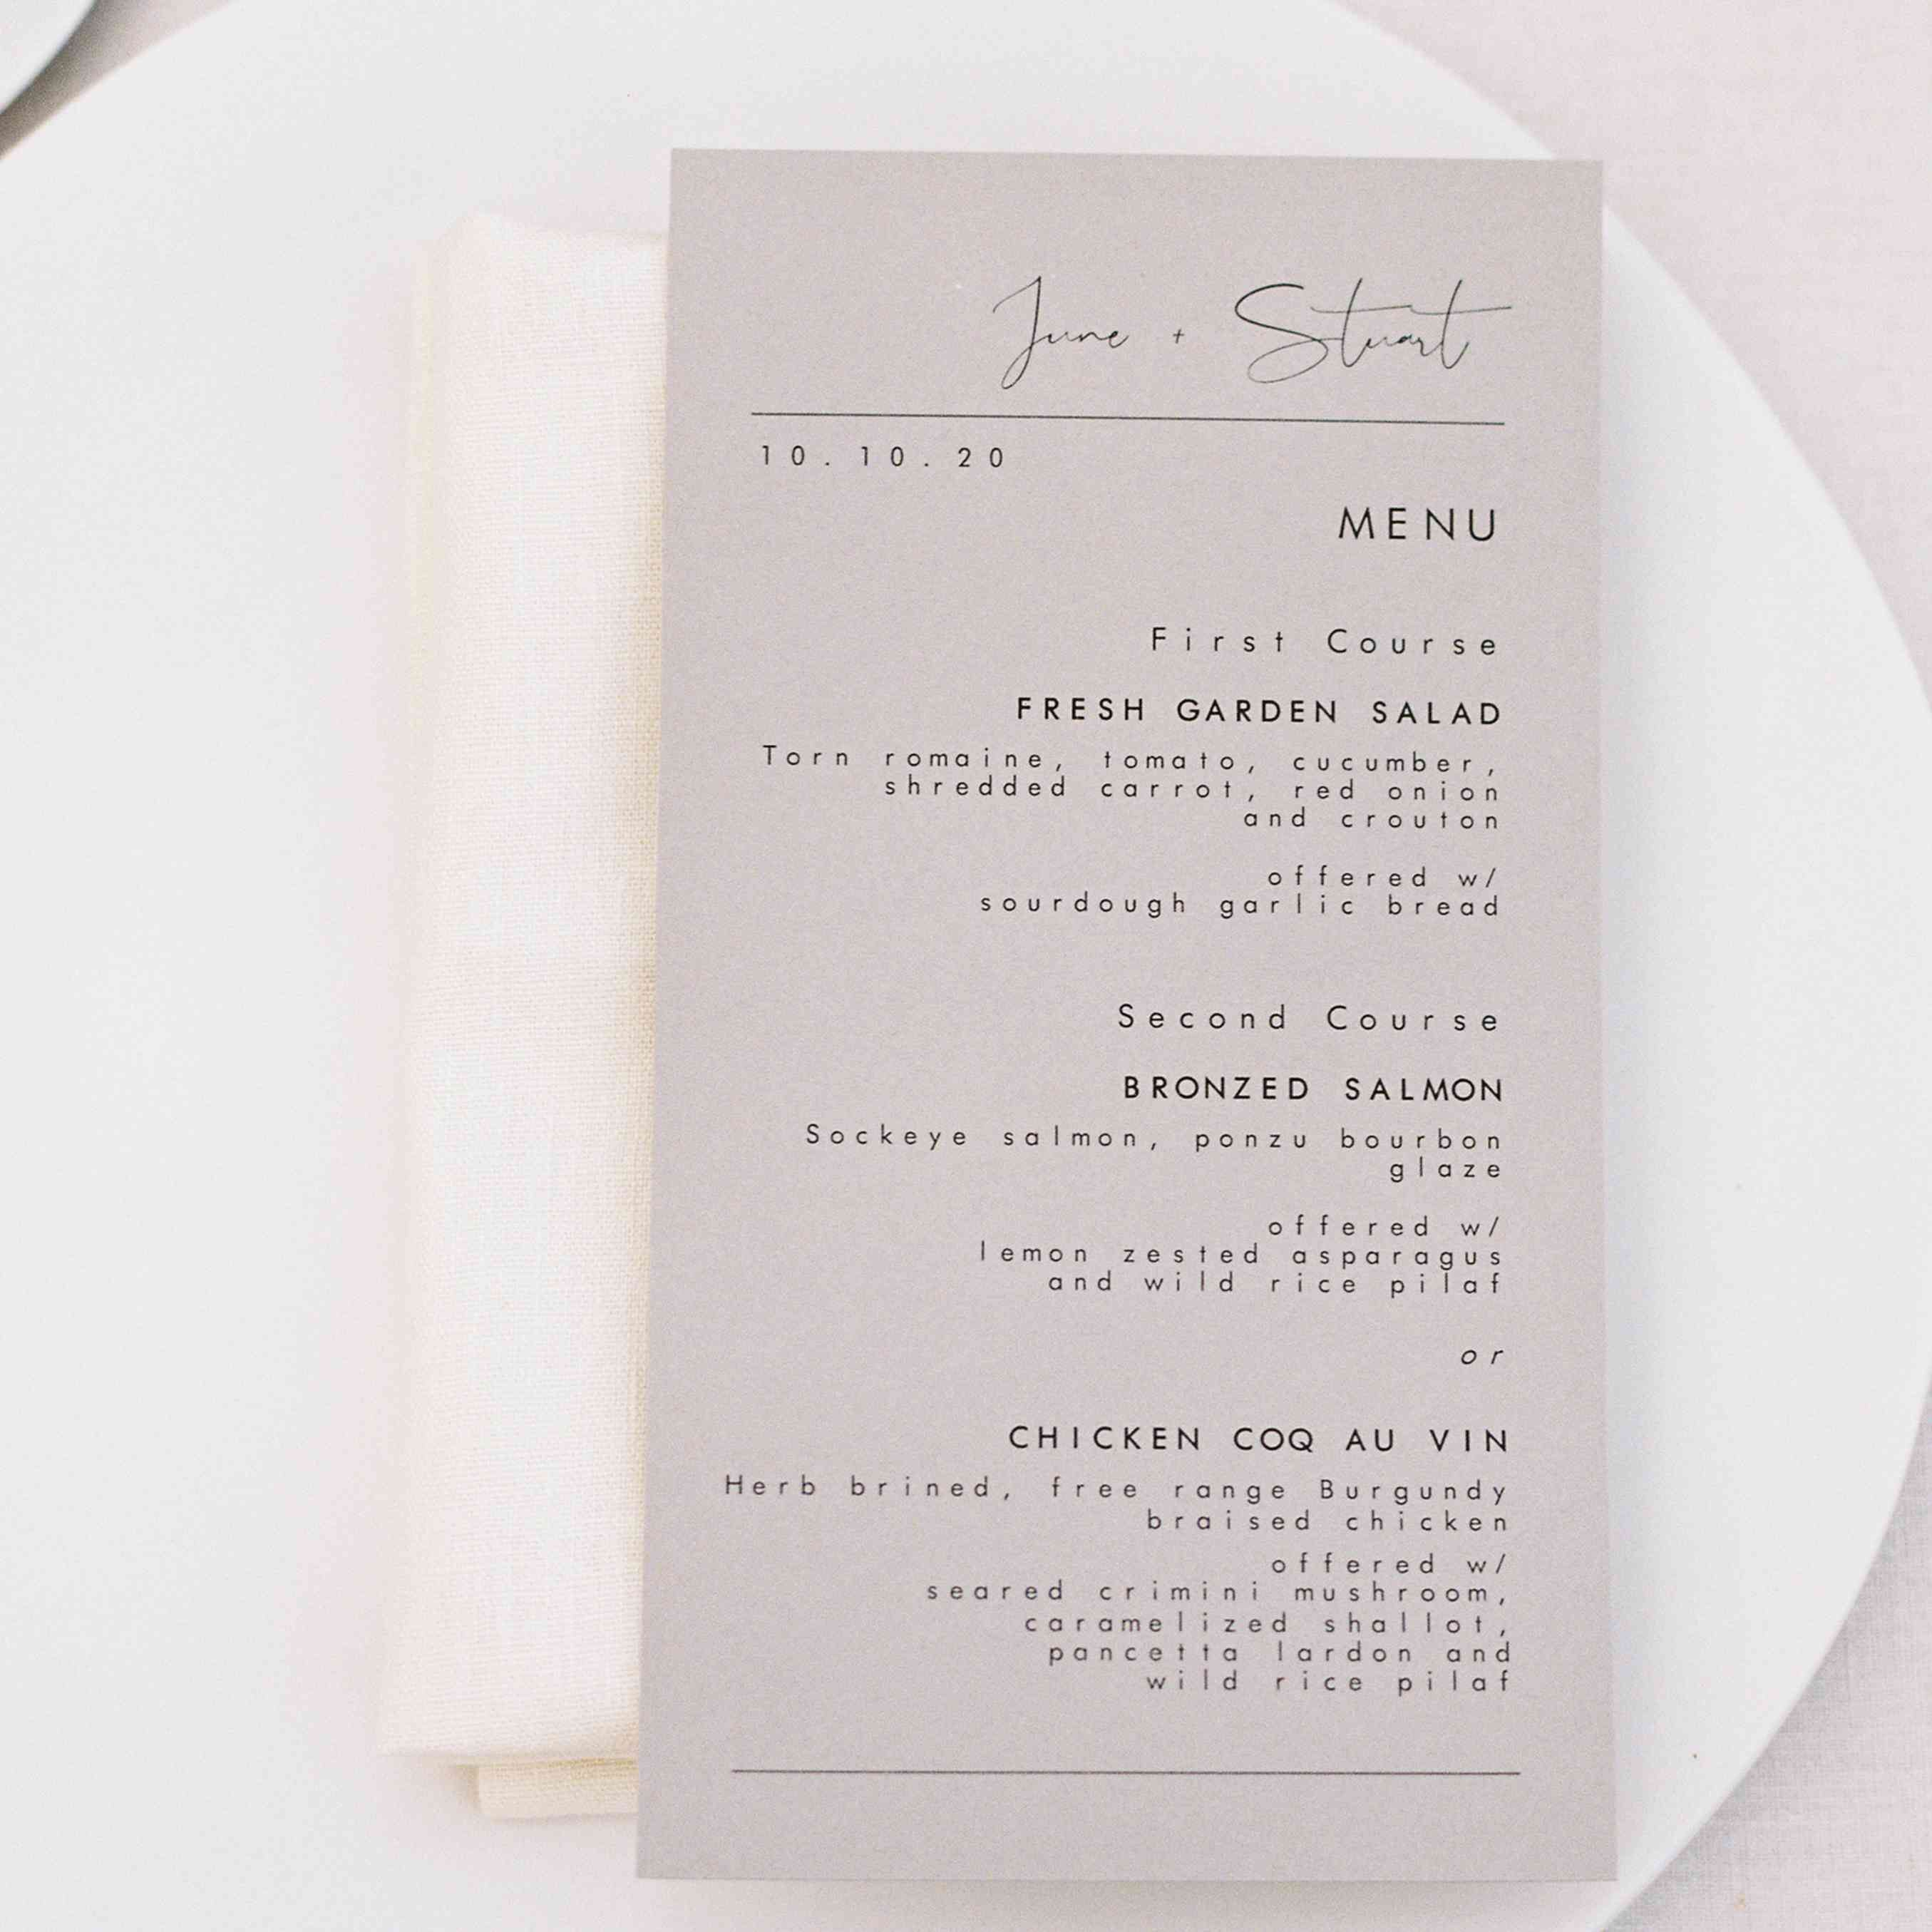 June + Stuart
10.10.20
MENU
First Course
FRESH GARDEN SALAD
Torn romaine, tomato, cucumber,
shredded carrot, red onion
and crouton
offered w/
sourdough garlic bread
Second Course
BRONZED SALMON
Sockeye salmon, ponzu bourbon
glaze
offered w/
lemon zested asparagus
and wild rice pilaf
or
CHICKEN COQ AU VIN
Herb brined, free range Burgundy
braised chicken
offered w/
seared crimini mushroom,
caramelized shallot,
pancetta lardon and
wild rice pilaf